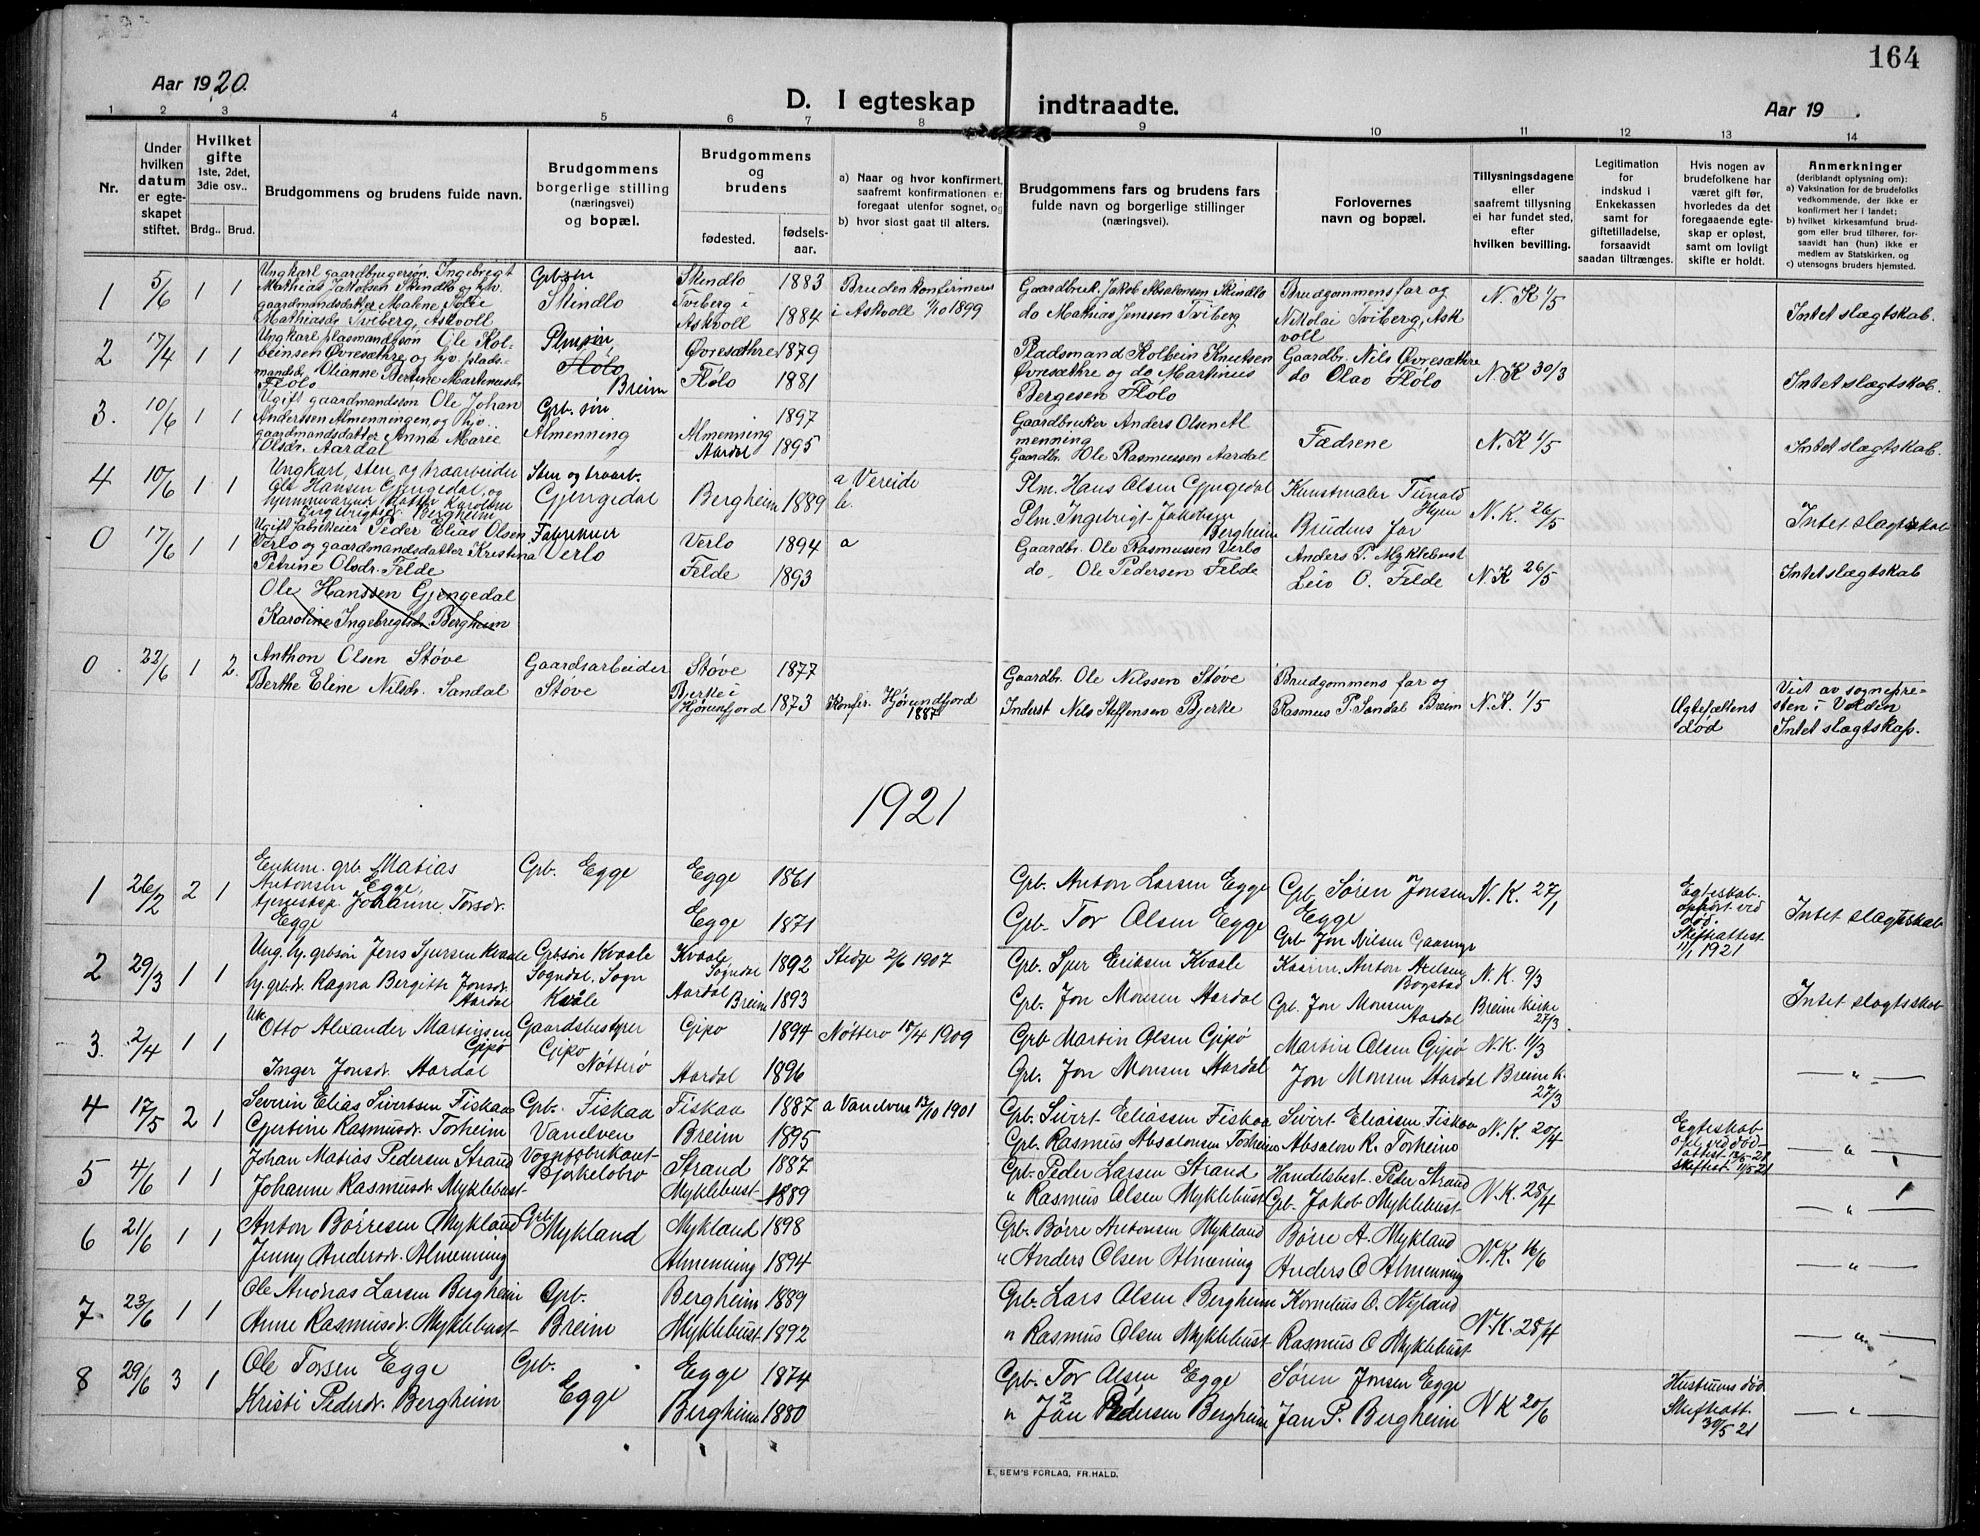 164
Aar 1920.
D. I egteskap indtraadte.
Aar 19 .
1 2 3 4 5 6 7 8 9 10 11 12 13 14
Nr.
Under hvilken datum er egteskapet stiftet.
Hvilket gifte 1ste, 2det, 3die osv..
Brdg.. Brud.
Brudgommens og brudens fulde navn.
Brudgommens borgerlige stilling (næringsvei) og bopæl.
Brudgommens og brudens
fødested. fødselsaar.
a) Naar og hvor konfirmert, saafremt konfirmationen er foregaat utenfor sognet, og
b) hvor sidst gaat til alters.
Brudgommens fars og brudens fars fulde navn og borgerlige stillinger (næringsvei).
Forlovernes navn og bopæl.
Tillysningsdagene eller saafremt tillysning ei har fundet sted, efter hvilken bevilling.
Legitimation for indskud i Enkekassen samt for giftetilladelse, forsaavidt saadan tiltrænges.
Hvis nogen av brudefolkene har været gift før, hvorledes da det foregaaende egteskap er opløst, samt om lovligt skifte er holdt.
Anmerkninger (deriblandt oplysning om): a) Vaksination for de brudefolks vedkommende, der ikke er konfirmert her i landet; b) hvilket kirkesamfund brudgom eller brud tilhører, forsaavidt han (hun) ikke er medlem av Statskirken, og c) utensogns bruders hjemsted.
1 5/6 1 1 Ungkarl gaardbrugersøn Ingebrigt Mathias Jakobsen Skindlo og hjv. gaardmandsdatter Malene Sofie Mathiasdr Tviberg, Askvoll
Grb. søn Skindlo
Skindlo 1883
Tviberg i Askvoll 1884
Bruden konfirmeres i Askvoll 1/10 1899
Gaardbruk. Jakob Absalonsen Skindlo
do Mathias Jensen Tviberg
Brudgommens far og Nikolai Tviberg, Askvoll
N. K 1/5
Intet slægtskab.
2 17/4 1 1 Ungkarl plasmandssøn Ole Kolbeinsen Øvresæthre og hjv. pladsmandsd. Olianne Bertine Martinusdr Flolo
Plmsøn Flólo Breim
Øvresæthre 1879
Flólo 1881
Pladsmand Kolbein Knutsen Øvresæthre og do Martinus Bergesen Flólo
Gaardbr. Nils Øvresæthre
do Olav Flólo
N. K 30/3
Intet slægtskab.
3. 10/6 1 1 Ugift gaardmandsson Ole Johan Anderssen Almenningen, og hjv. gaardmandsdatter Anna Marie Olsdr. Aardal
Grb. søn Almenning
Almenning 1897
Aardal 1895
Gaardbruker Anders Olsen Almenning
Gaardbr. Ole Rasmussen Aardal
Fædrene
N. K 1/5
Intet slægtskab.
4 10/6 1 1 Ungkarl sten og traarbeider Ole Hansen Gjengedal, og hjemmeværende datter Karoline Ingebrigtsd. Bergheim
Sten og traarb. Gjengedal
Bergheim 1889
a Vereide
b.
Plm. Hans Olsen Gjengedal
Plm. Ingebrigt Jakobsen Bergheim
Kunstmaler Tunold Hyen
Brudens far
N. K. 26/5
Intet slægtskab
0 17/6 1 1 Ugift fabrikeier Peder Elias Olsen Verlo og gaardmandsdatter Kristina Petrine Olsdr. Felde
Fabrikeier Verlo
Verlo 1894
Felde 1893
a
Gaardbr. Ole Rasmussen Verlo
do. Ole Pedersen Felde
Anders P. Myklebust
Leiv O. Felde
N. K 26/5
Intet slægtskab
Ole Hanssen Gjengedal
Karoline Ingebrigtsdr. Bergheim
0. 22/6 1 2. Anthon Olsen Støve
Berthe Eline Nilsdr. Sandal
Gaardsarbeider Støve
Støve 1877
Bjerke i Hjørunfjord 1873
Konfir. Hjørundfjord 1887
Gaardbr. Ole Nilssen Støve
Inderst Nils Steffensen Bjerke
Brudgommens far og
Rasmus P. Sandal Breim
N. K. 1/5
Egtefællens død
Viet av sognepresten i Volden
Intet slægtskap.
1921
1 26/2 2 1 Enkem. grb. Matias Antonsen Egge,
tjenestep. Johanne Torsdr. Egge
Grb. Egge
Egge 1861
Egge 1871
Grb. Anton Larsen Egge
Grb. Tor Olsen Egge
Grb. Søren Jonsen Egge
Grb Jon Nilsen
N. K. 27/1
Egteskab. ophørt ved død. Skifteattest 11/1 1921
Intet slægtskab
2 29/3 1 1 Ung. hj. grbsøn Jens Sjursen Kvaale
hj. grb.dr. Ragna Bergitte Jonsdr. Aardal
Grbsøn Kvaale Sogndal. Sogn Kvåle
Kvaale Sogndal 1892
Aardal Breim 1893
Stedje 2/6 1907
Grb. Sjur Eriksen Kvaale
Grb. Jon Monsen Aardal
Anton Nielsen Bogstad
Grb. Jon Monsen Aardal
N. K. 9/3
Breim Kirke 27/3.
Intet slægtsskab
3. 2/4 1 1 Uk Otto Alexander Martinsen Gipø
Inger Jonsdr. Aardal
Gaardsbestyrer Gipø Nøtterø
Gipø 1894
Aardal 1896
Nøtterø 18/4 1909
Grb Martin Olsen Gipø
Grb. Jon Monsen Aardal
Martin Olsen Gipø
Jon Monsen Aardal
N. K. 11/3
Breim K. 27/3
— " —
4 17/5 2 1 Severin Elias Sivertsen Fiskaa
Gjertine Rasmusdr. Torheim
Grb. Fiskaa Vanelven
Fiskaa 1887
Breim 1895
a Vanelven 13/10 1901
Grb. Sivert Eliassen Fiskaa
Grb. Rasmus Absalonsen Torheim
Sivert Eliasen Fiskaa
Absalon R. Torheim
N. K. 20/4
Egteskab opl. ved død
— " —
5 4/6 1 1 Johan Matias Pedersen Strand
Johanne Rasmusdr. Myklebust
Vognfabrikant Gjøkelobro
Strand 1887
Myklebust 1889
Grb. Peder Larsen Strand
" Rasmus Olsen Myklebust
Handelsbest. Peder Strand
Grb. Jakob Myklebust
N. K. 28/4
— " —
6 21/6 1 1 Anton Børresen Mykland
Jenny Andersdr. Almenning
Grb. Mykland
Mykland 1898
Almenning 1894
Grb. Børre Antonsen Mykland
" Anders Olsen Almenning
Børre A. Mykland
Anders O Almenning
N. K. 16/6
— " —
7 23/6 1 1 Ole Andreas Larsen Bergheim
Anne Rasmusdr. Myklebust
Grb. Breim
Bergheim 1889
Myklebust 1892
Grb. Lars Olsen Bergheim
" Rasmus Olsen Myklebust
Kornelius O. Nyland
Rasmus O Myklebust
N. K. 28/4
— " —
8 29/6 3 1 Ole Torsen Egge
Kristi Pedersdr. Bergheim
Grb. Egge
Egge 1874
Bergheim 1880
Grb. Tor Olsen Egge
" Jan Pedersen Bergheim
Søren Jonsen Egge
Jan P. Bergheim
N K 20/6
Hustruens død
Skifteatt. 30/5 21
— " —
E. SEM'S FORLAG, FR.HALD.